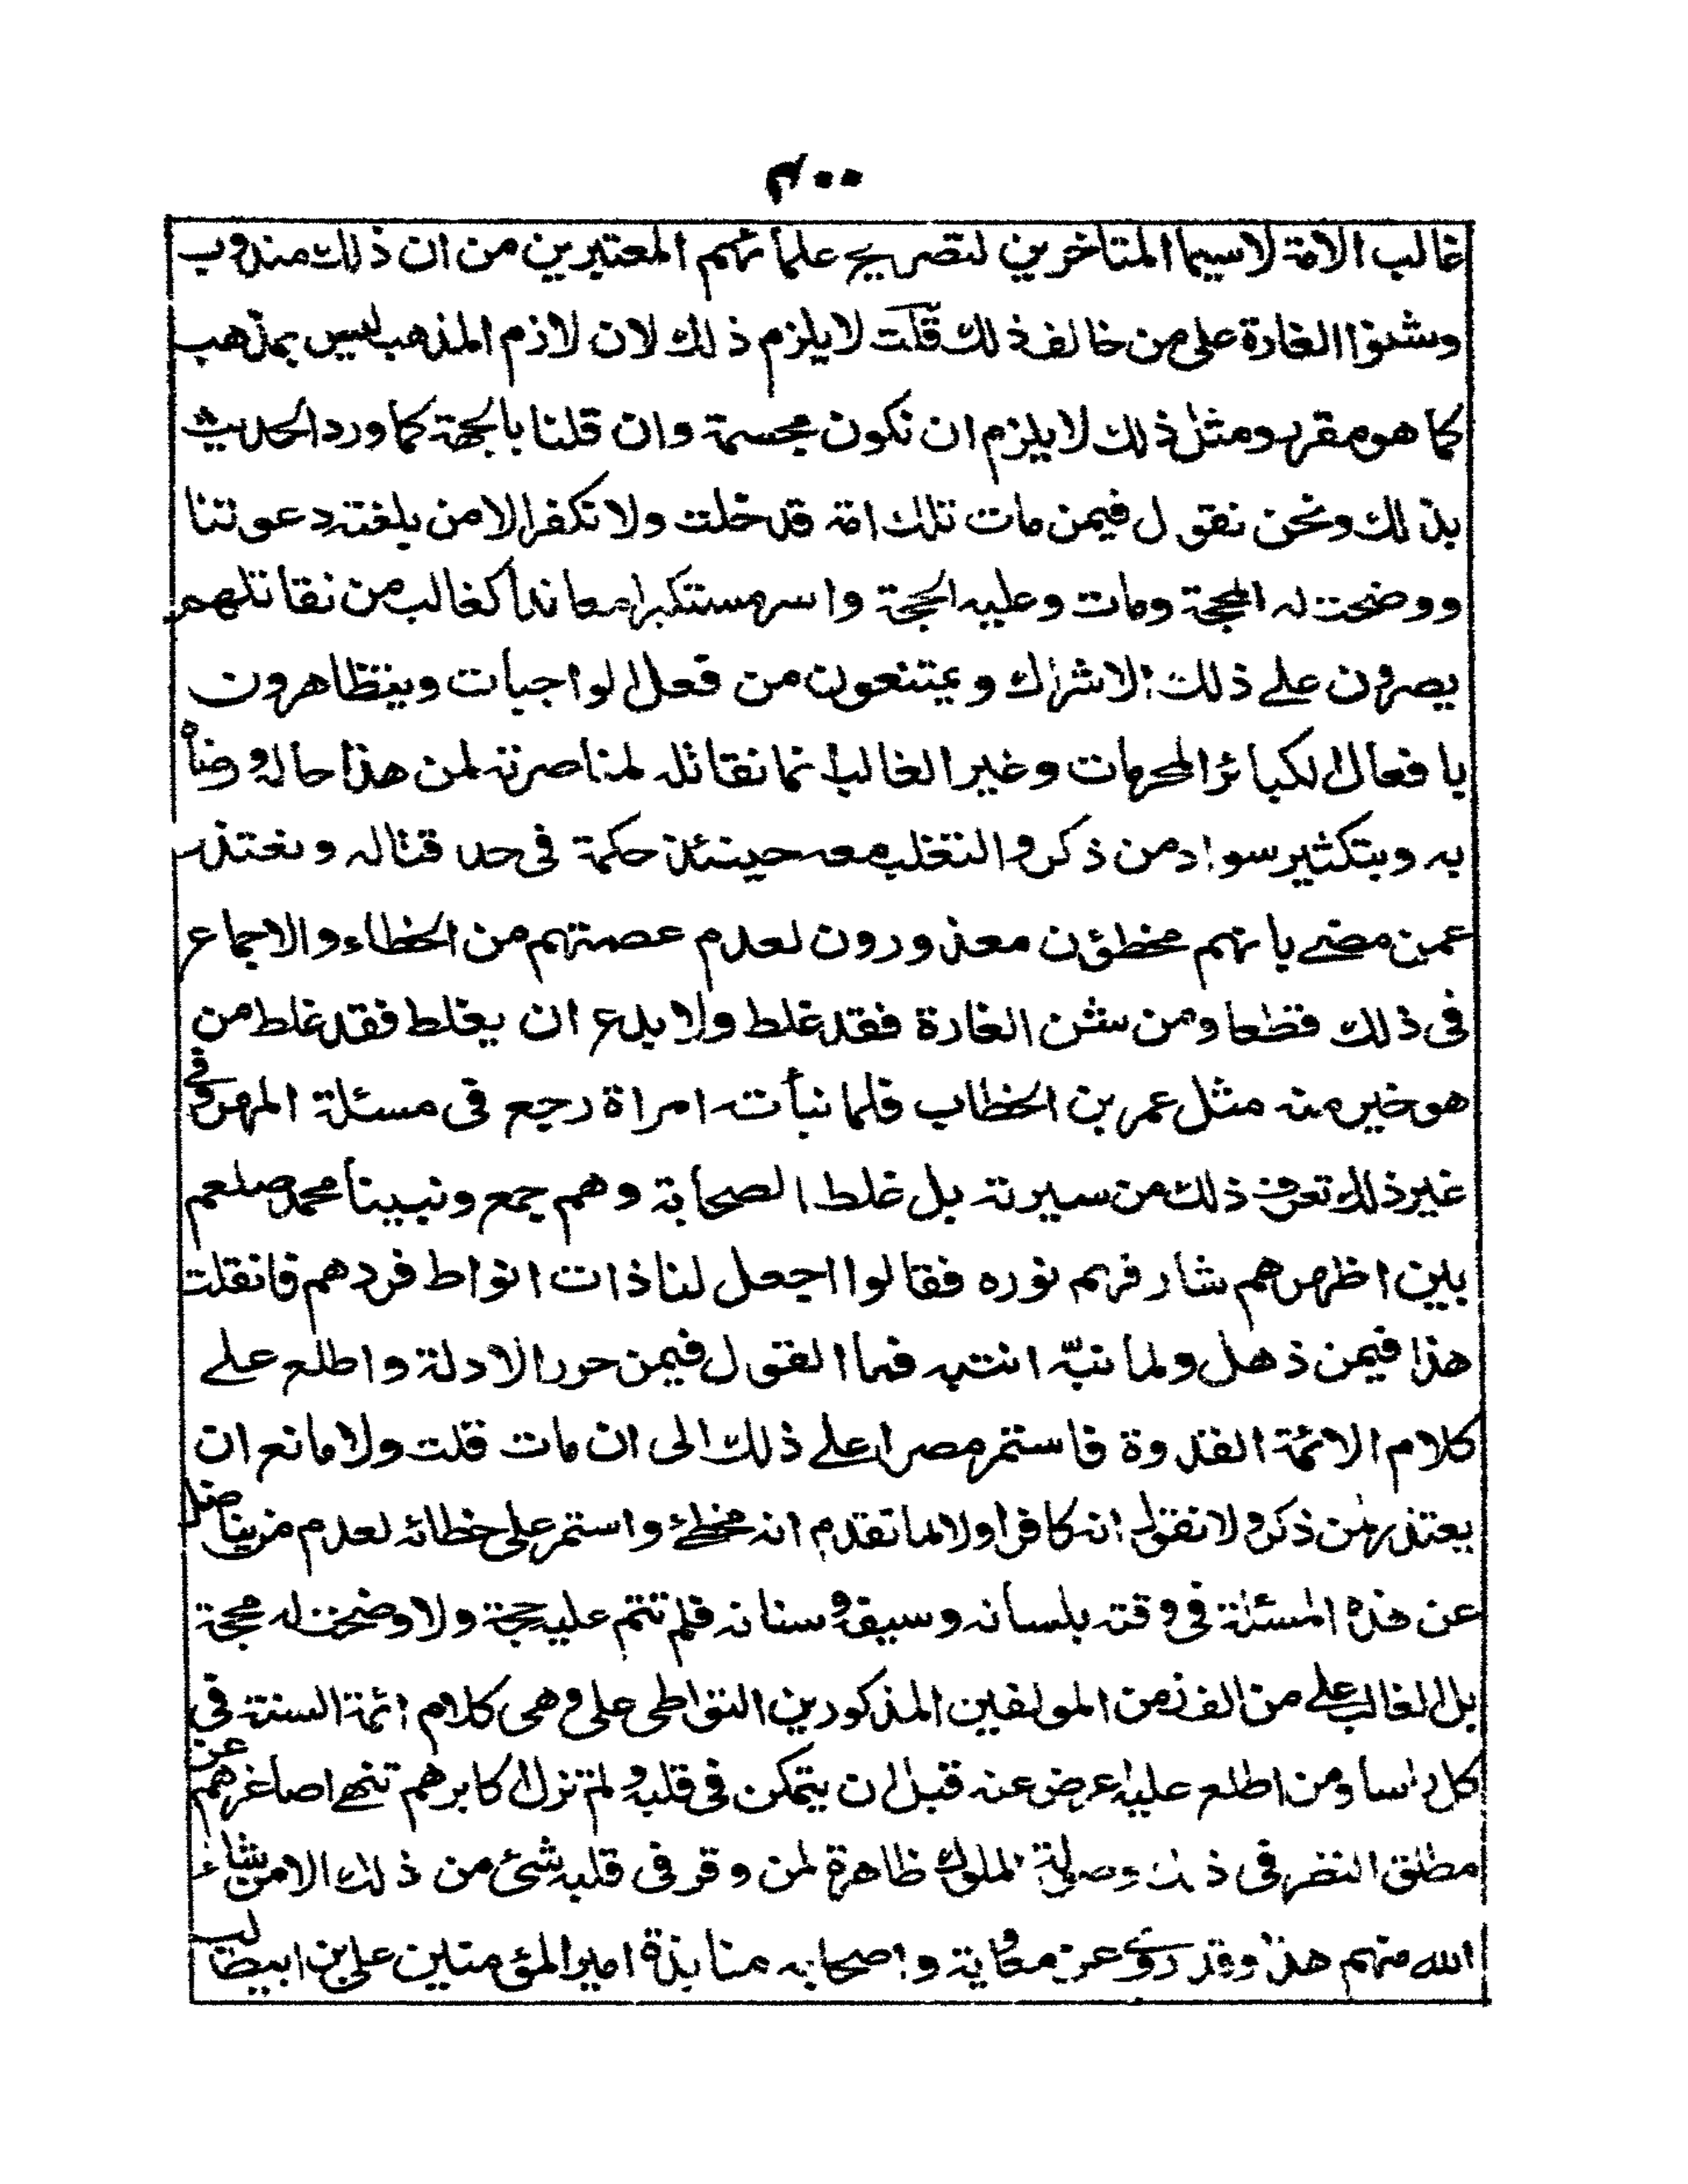 ٤٠٠
غالب الامة لاسيما المتاخرين لتصريح علمائهم المعتبرين من ان ذلك مندوب
وشنوا الغارة على من خالف ذلك قلت لا يلزم ذلك لان لازم المذهب ليس بمذهب
كما هو مقرر ومثل ذلك لا يلزم ان نكون مجسمة وان قلنا بالجهة كما ورد الحديث
بذلك ونحن نقول فيمن مات تلك امة قد خلت ولا نكفر الا من بلغته دعوتنا
ووضحت له المحجة ومات وعليه الحجة واسر مستكبرا معاندا كغالب من نقاتلهم
يصرون على ذلك الاشراك ويمتنعون من فعل الواجبات ويتظاهرون
بافعال الكبائر المحرمات وغير الغالب انما نقاتله لمناصرته لمن هذا حاله ورضأ
به وبتكثير سواد من ذكر والتغلب معه حينئذ حكمة فى حد قتاله ونعتذر
عمن مضے بانهم مخطؤن معذورون لعدم عصمتهم من الخطاء والاجماع
فى ذلك قطعا ومن شن الغارة فقد غلط ولا بدع ان يغلط فقد غلط من
هو خير منه مثل عمر بن الخطاب فلما نبأته امراة رجع فى مسئلة المهر وفي
غير ذلك تعرف ذلك من سيرته بل غلط الصحابة وهم جمع ونبينا محمد صلعم
بين اظهرهم سار فيهم نوره فقالوا اجعل لنا ذات انواط فردهم فانقلت
هذا فيمن ذهل ولما نبّه انتبه فما القول فيمن حرر الادلة واطلع علے
كلام الائمة القدوة فاستمر مصرا علے ذلك الى ان مات قلت ولا مانع ان
يعتذر لمن ذكر ولا نقول انه كافر اولا لما تقدم انه مخطئ واستمر على خطائه لعدم من يناضل
عن هذه المسئلة فى وقته بلسانه وسيفه وسنانه فلم تتم عليه حجة ولا وضحت له محجة
بل الغالب علے من الف زمن المولفين المذكورين التواطى على هجر كلام ائمة السنة فى
كل راسا ومن اطلع عليه اعرض عنه قبل ان يتمكن فى قلبه ولم تزل اكابرهم تنهے اصاغرهم عن
مطلق النظر فى ذلك وصولة الملوك ظاهرة لمن وقر فى قلبه شئ من ذلك الا من شاء
الله منهم هذا وقد روے عن معاوية واصحابه منابذة امير المؤمنين على بن ابيطالب